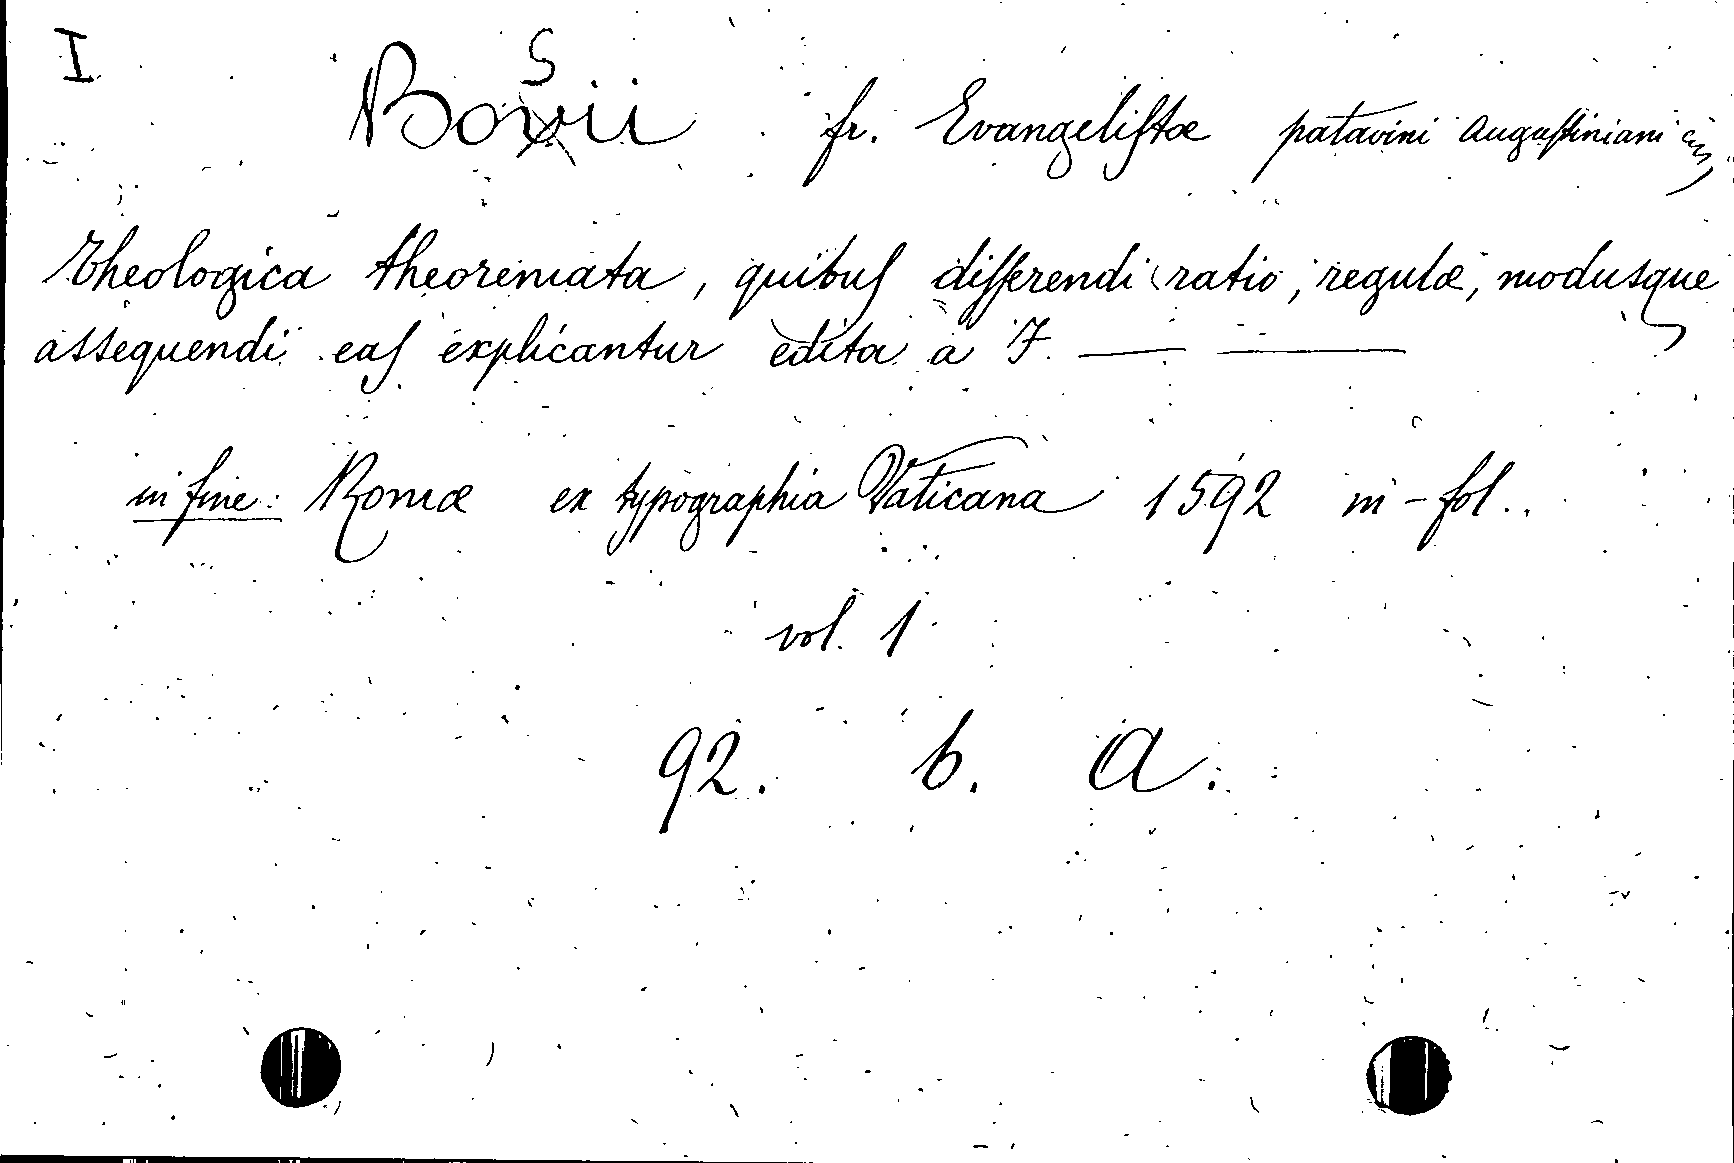 I Bosii fr. Evangeliſtæ patavini Auguſtiniani
Theologica theoremata, quibuſ diſſerendi ratio, regulæ, modusque
assequendi eaſ explicantur edita a F. — —
in fine: Romæ ex typographia Vaticana 1592 in-fol.
vol. 1
92. b. A.